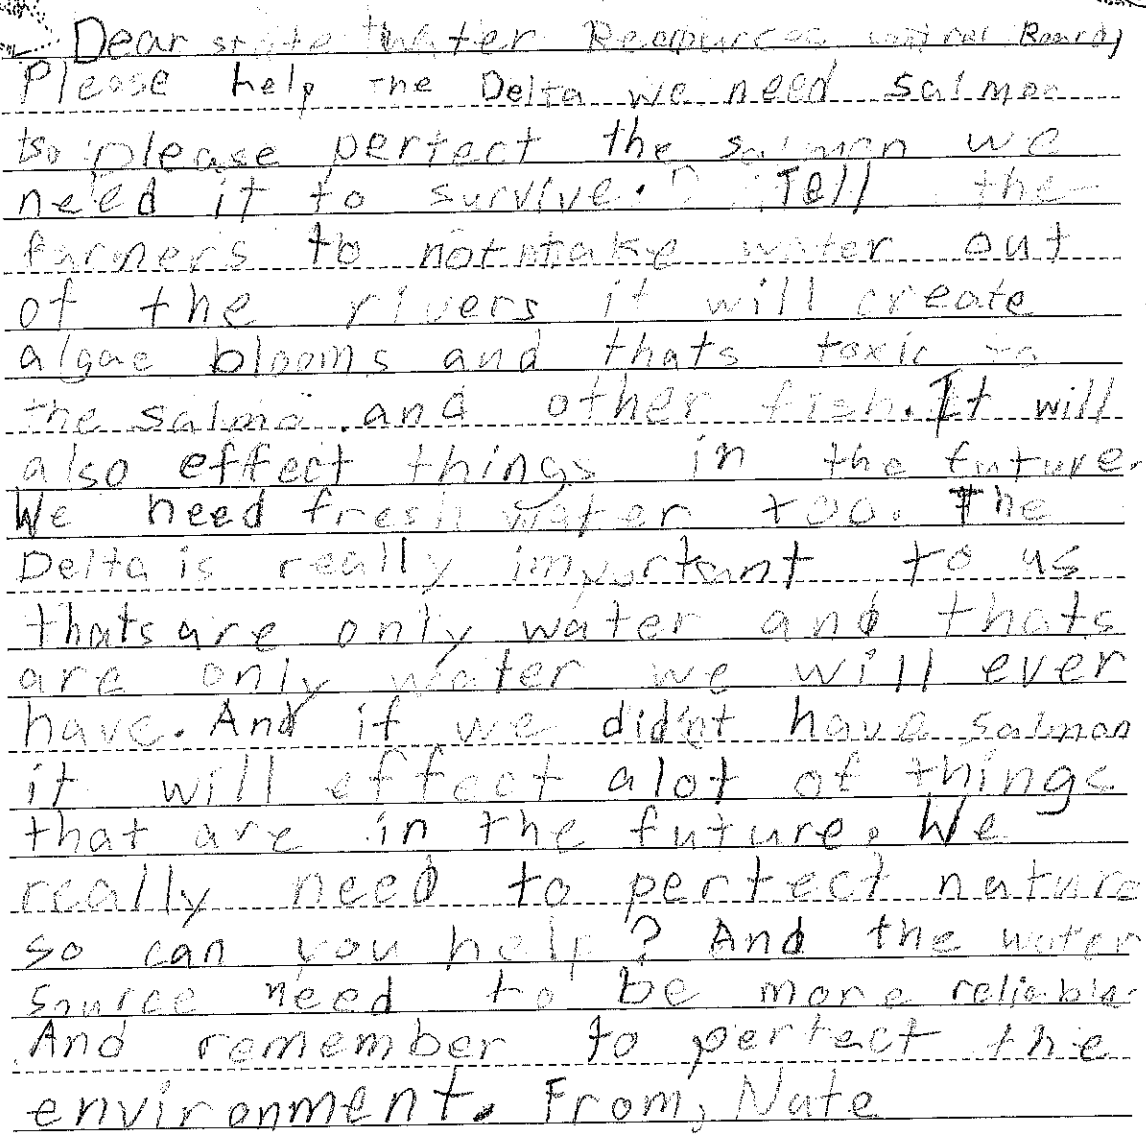 Dear state Water Resources control Board,
Please help The Delta we need salmon
so please pertect the salmon we
need it to survive. Tell the
farmers to not take water out
of the rivers it will create
algae blooms and thats toxic to
the salmo and other fish. It will
also effect things in the future.
We need fresh water too. The
Delta is really important to us
thats are only water and thats
are only water we will ever
have. And if we did'nt have salmon
it will effect alot of things
that are in the future. We
really need to pertect nature
so can you help? And the water
source need to be more reliable.
And remember to pertect the
environment. From, Nate